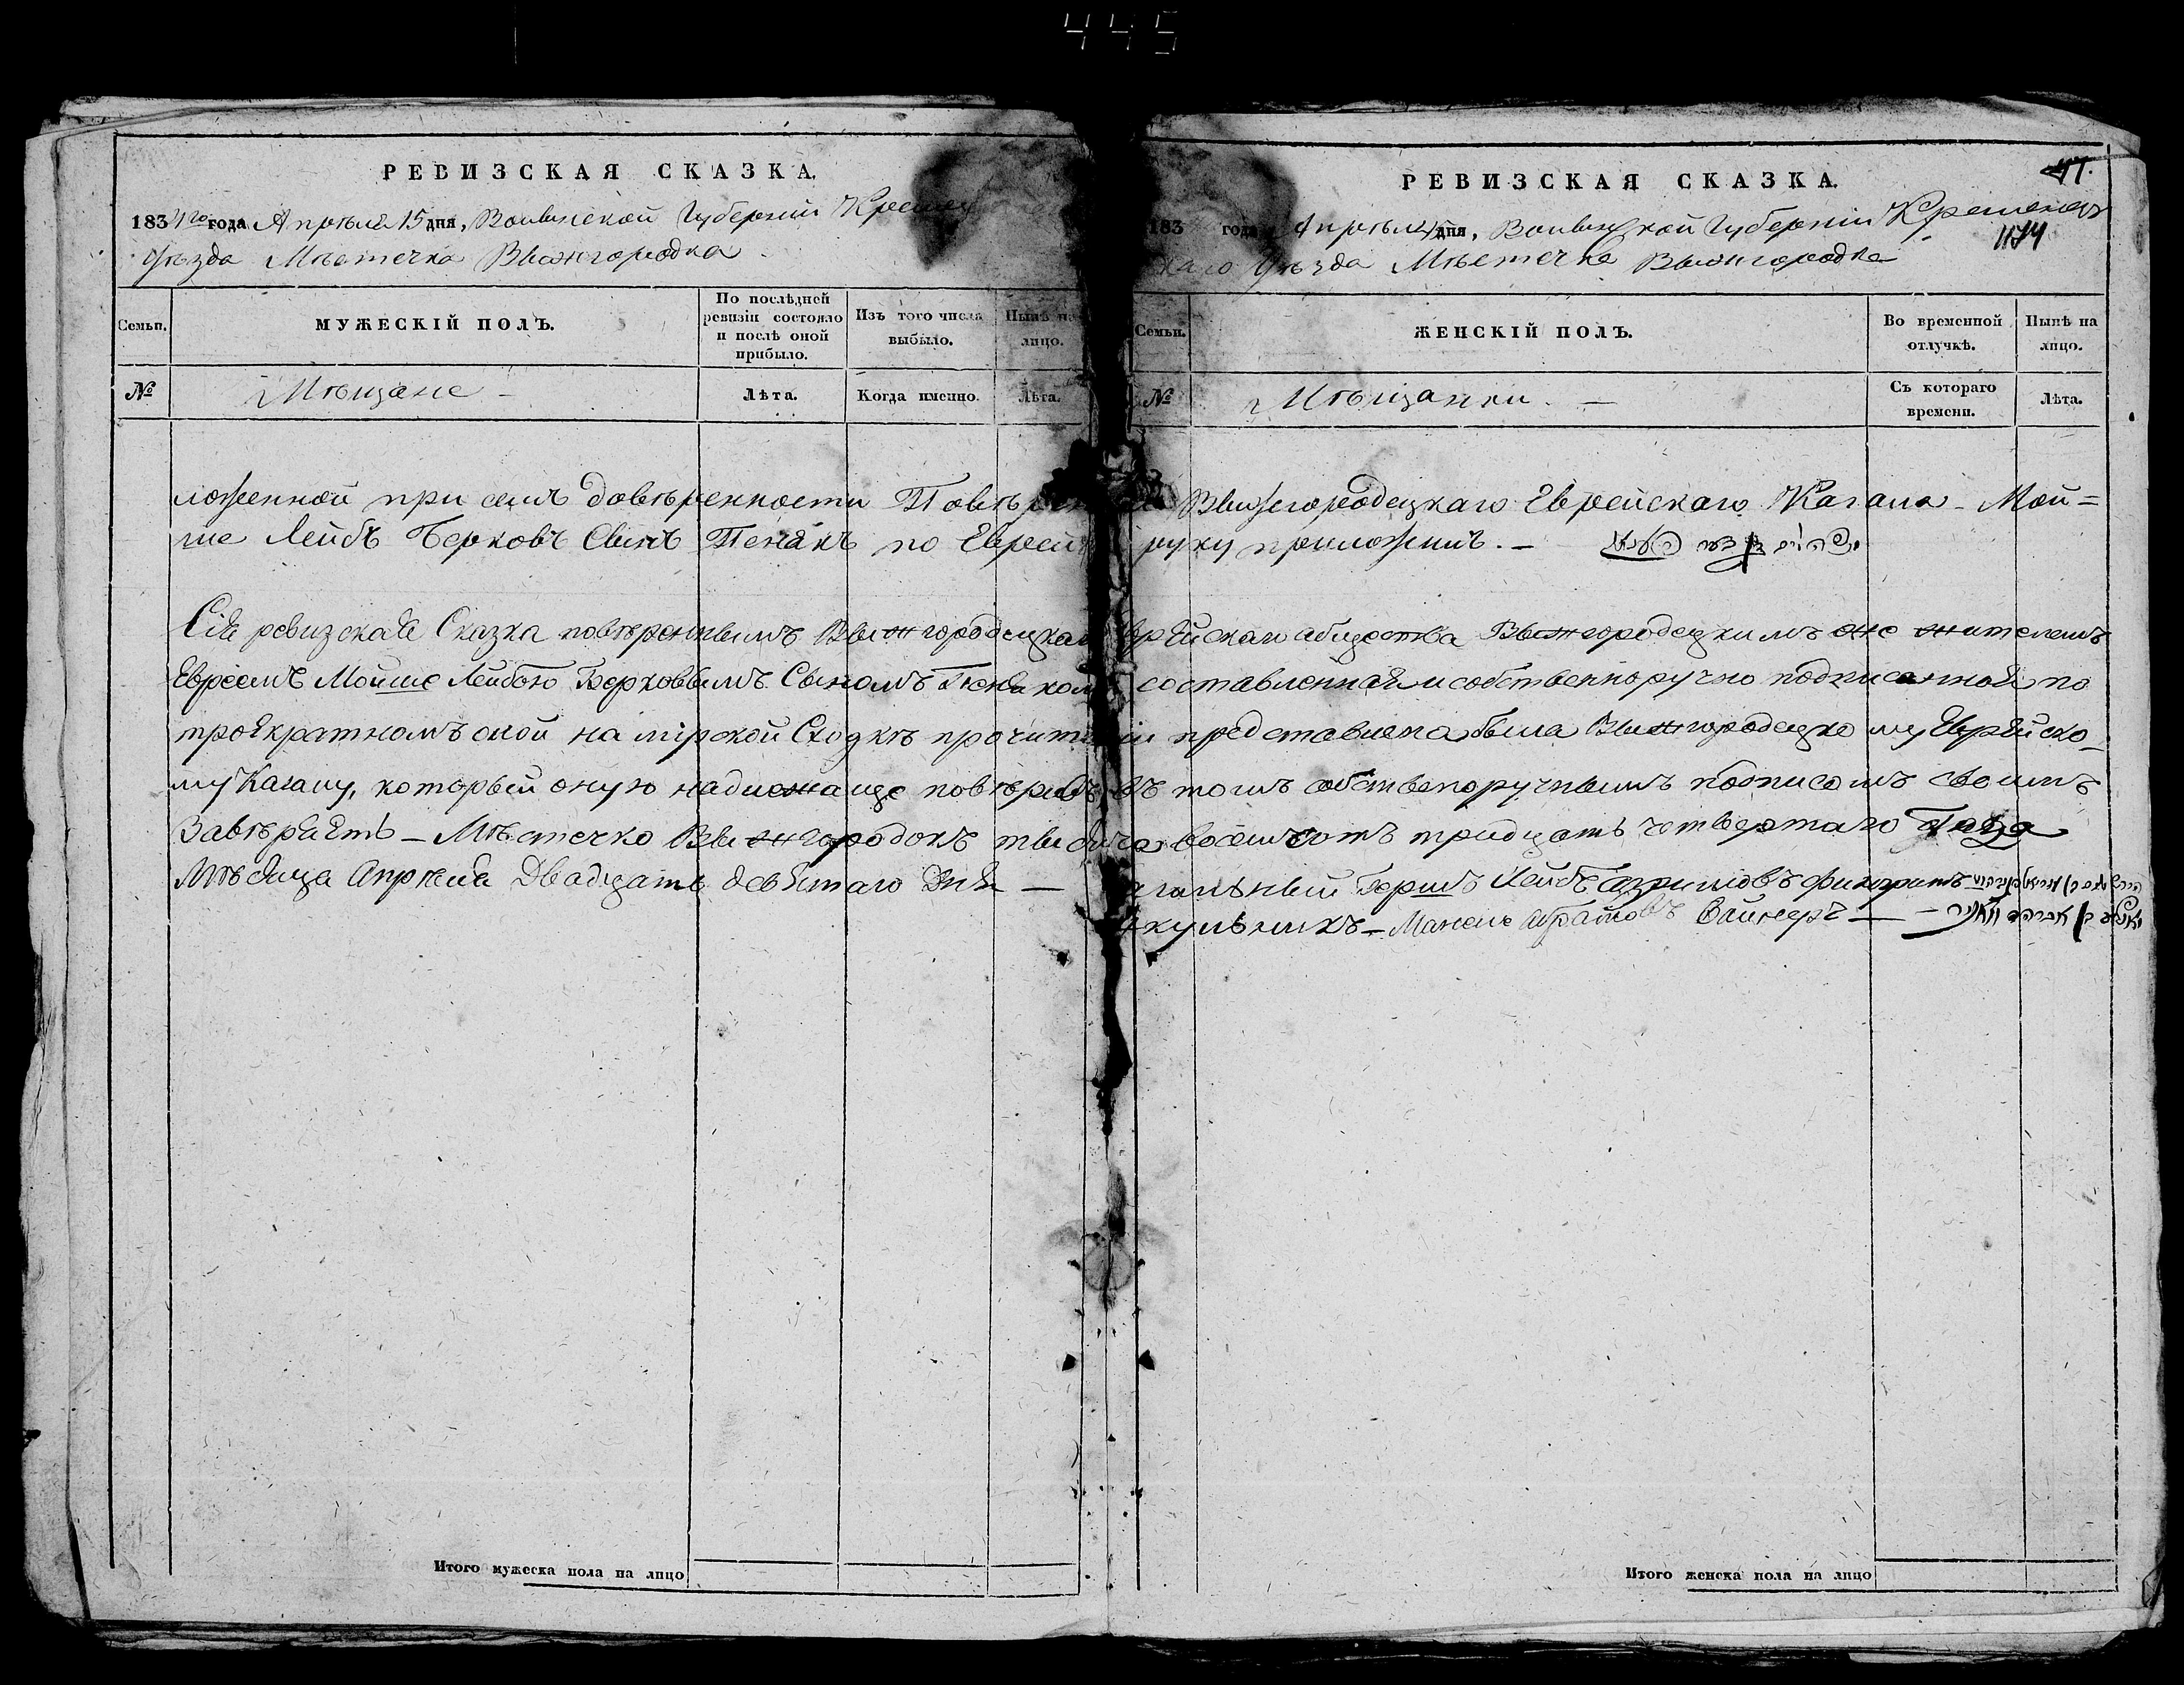 445
РЕВИЗСКАЯ СКАЗКА.
1834го года Апрѣля 15 дня, Волынской Губерніи Кременец
Уѣзда Мѣстечка Выжгородка
Семьи.
МУЖЕСКІЙ ПОЛЪ.
По послѣдней ревизіи состояло и послѣ оной прибыло.
Изъ того числа выбыло.
Нынѣ на лицо.
№
Мѣщане
Лѣта.
Когда именно.
Лѣта.
РЕВИЗСКАЯ СКАЗКА.
47.
1174
183 года Апрѣля дня, Волынской Губерніи Кременец
каго Уѣзда Мѣстечка Выжгородка
Семьи.
ЖЕНСКІЙ ПОЛЪ.
Во временной отлучкѣ.
Нынѣ на лицо.
№
Мѣщанки.
Съ котораго времени.
Лѣта.
ложенной при семъ довѣренности Повѣренный Выжегородецкаго Еврейскаго Кагала Мой=
ше Лейбъ Берковъ Сынъ Пенякъ по Еврей руку приложилъ.
Сія ревизская Сказка повѣреннымъ Выжгородецкаго Еврейскаго общества Выжгородецкимъ же жителемъ
Евреемъ Мойше Лейбою Берковымъ Сыномъ Пенякомъ составленная и собственноручно подписанная по
троякратномъ оной на мірской Сходкѣ прочитаніи представлена была Выжгородецкому Еврейско-
му Кагалу, который оную надлежаще повѣривъ въ томъ собственоручнымъ подписомъ своимъ
Завѣряетъ – Мѣстечко Выжгородокъ тысяча восемьсотъ тридцать четвертаго Года
Мѣсяца Апрѣля Двадцать девятаго Дня — Кагальный Гершъ Лейбъ
Школьникъ – Манель Абрамовъ Вайнеръ
Итого мужеска пола на лицо
Итого женска пола на лицо